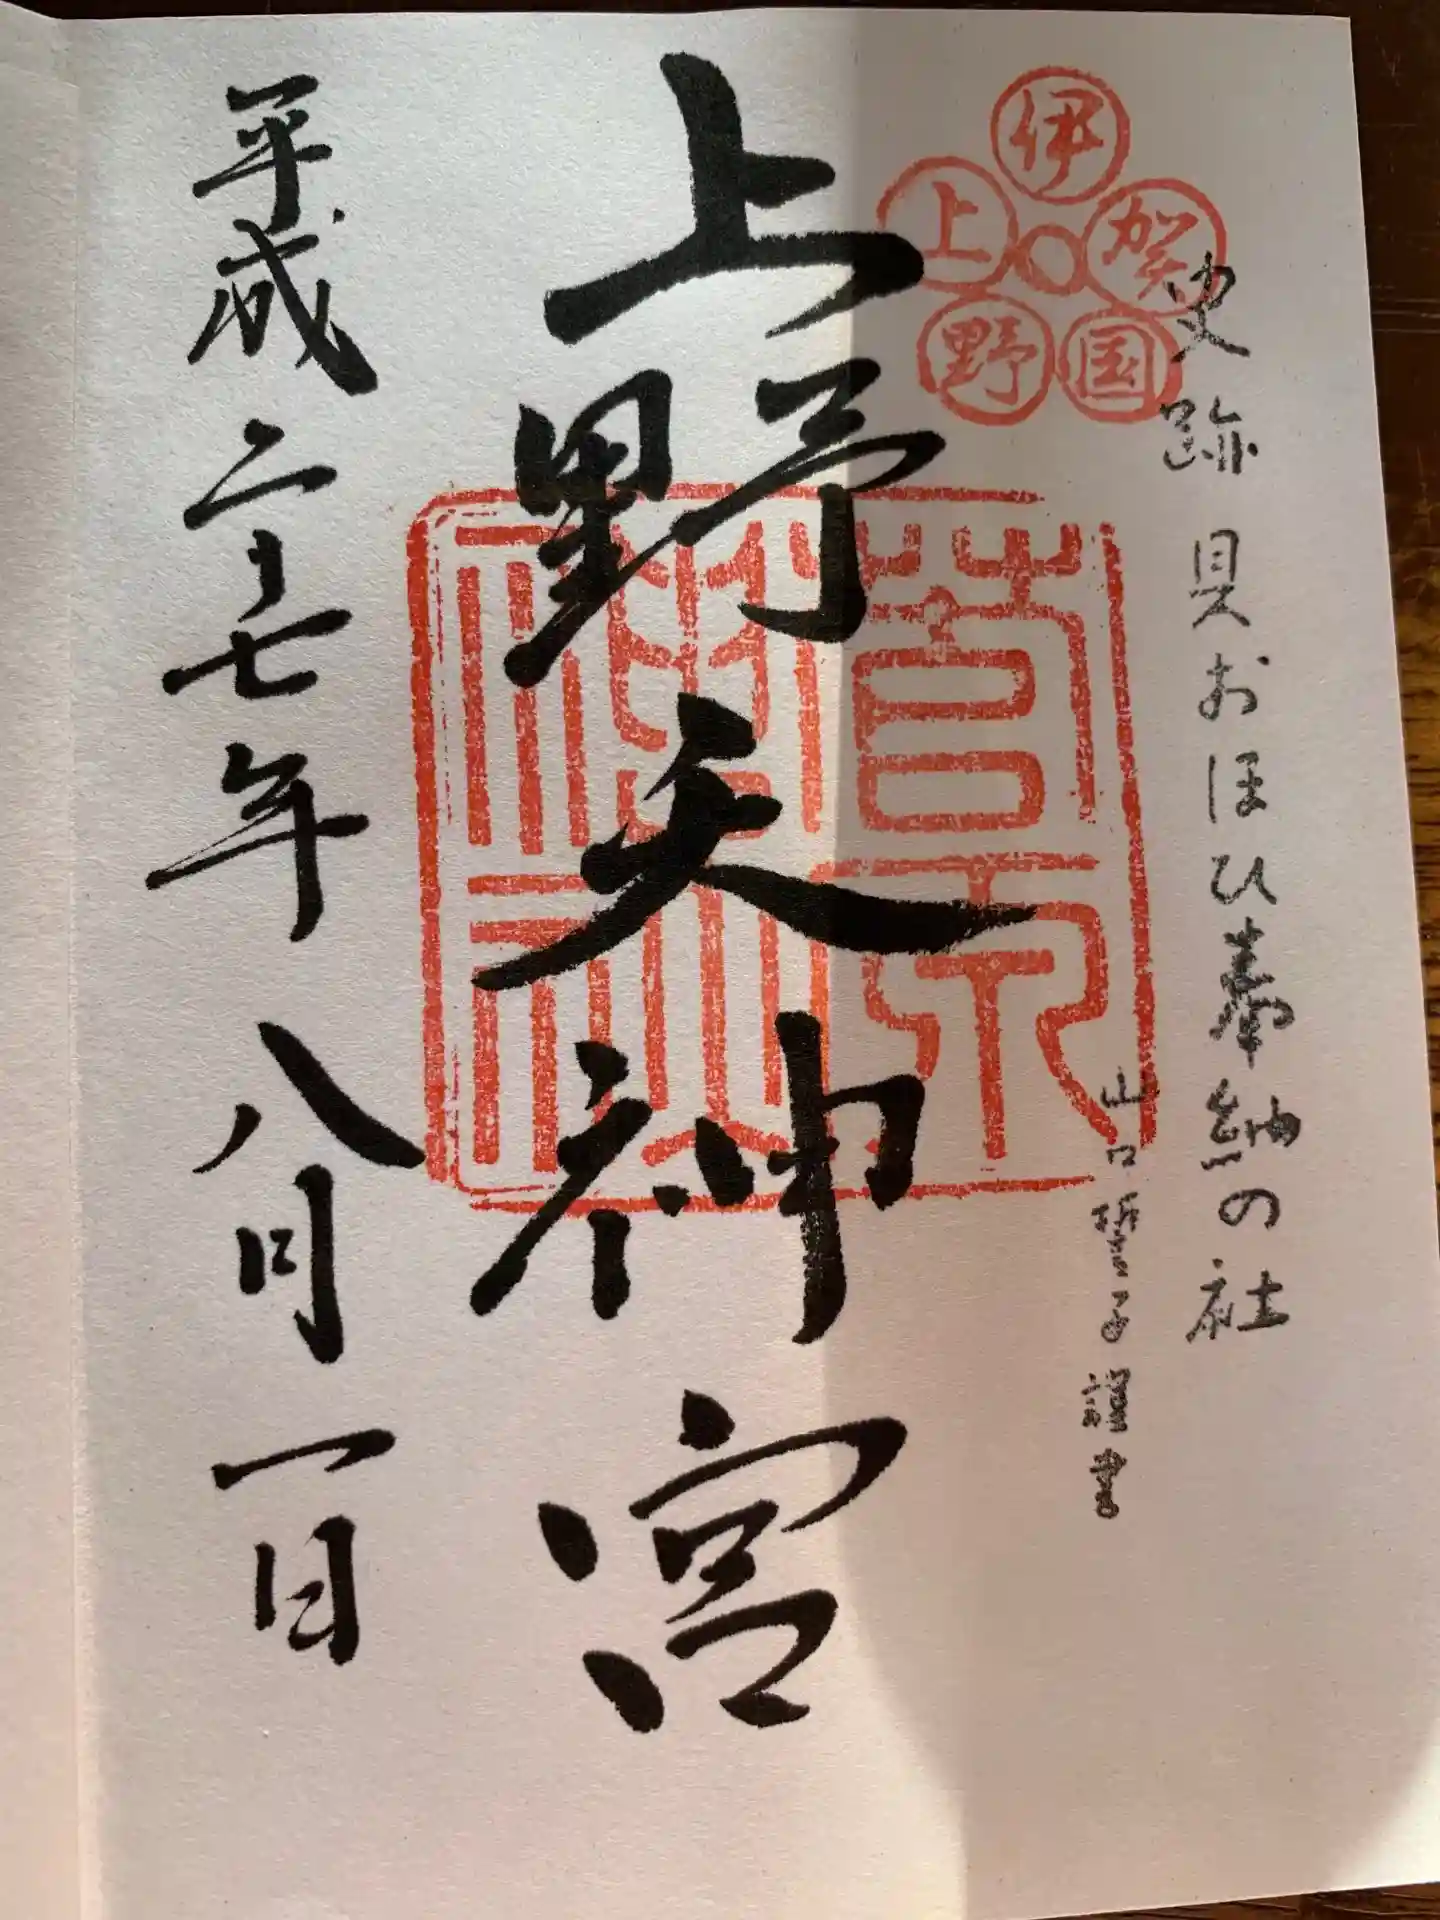 伊賀国上野
史跡 貝おほひ奉納の社
山口誓子謹書
上野天神宮
菅原神社
平成二十七年八月一日